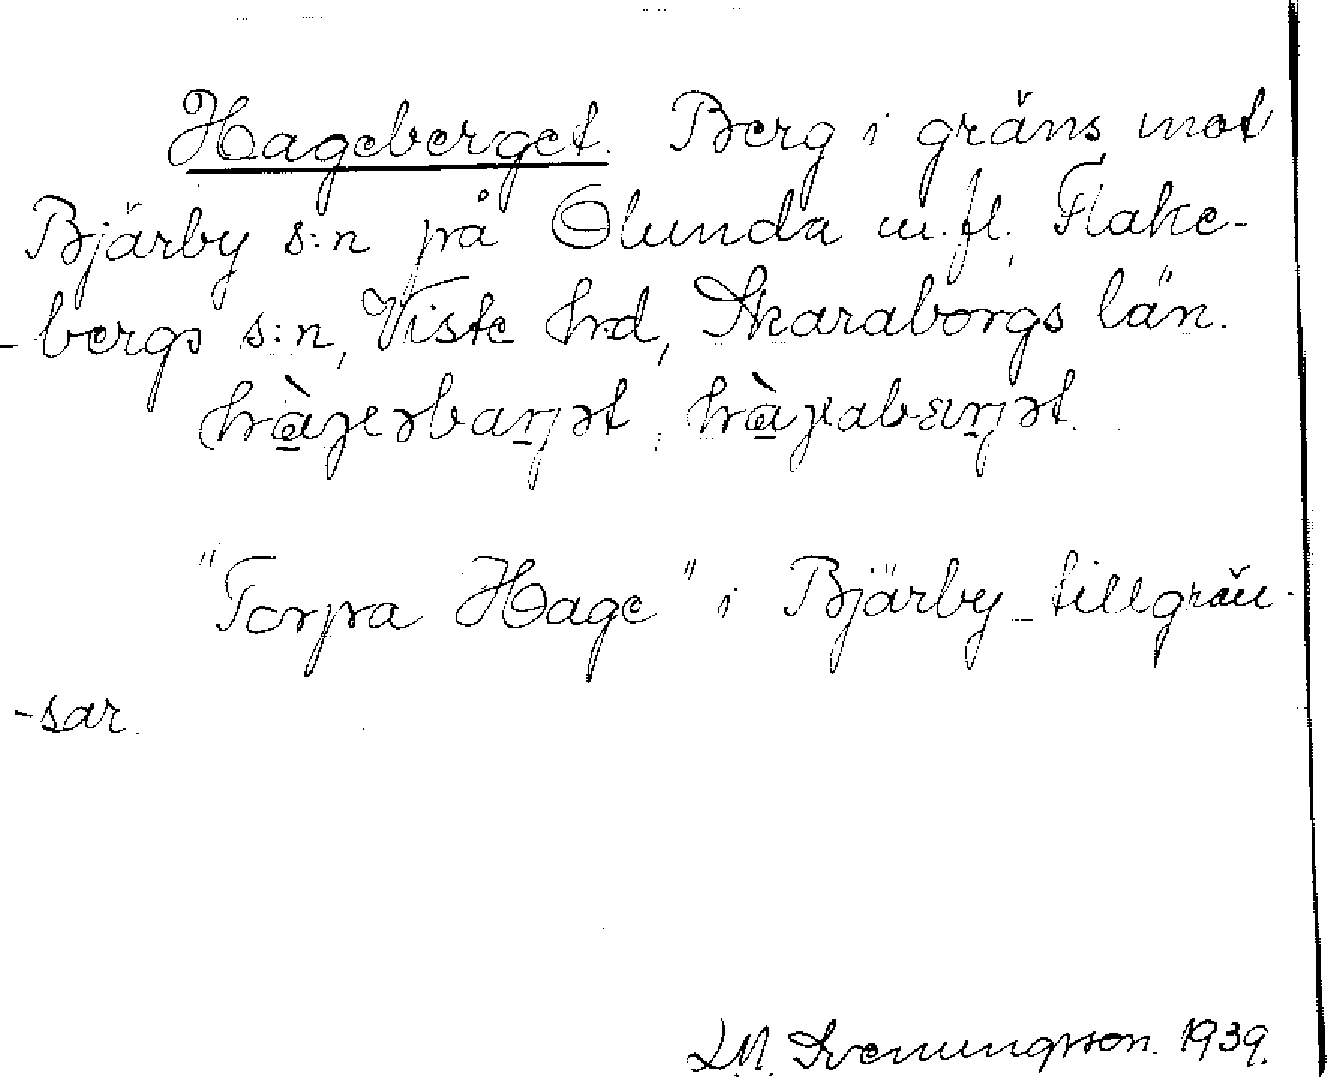 Hageberget. Berg i gräns mot
Bjärby s:n på Olunda m.fl., Flake-
-bergs s:n, Viste hrd, Skaraborgs län.
"Torpa Hage" i Bjärby tillgrän-
-sar.
D.N. Svenungsson. 1939.